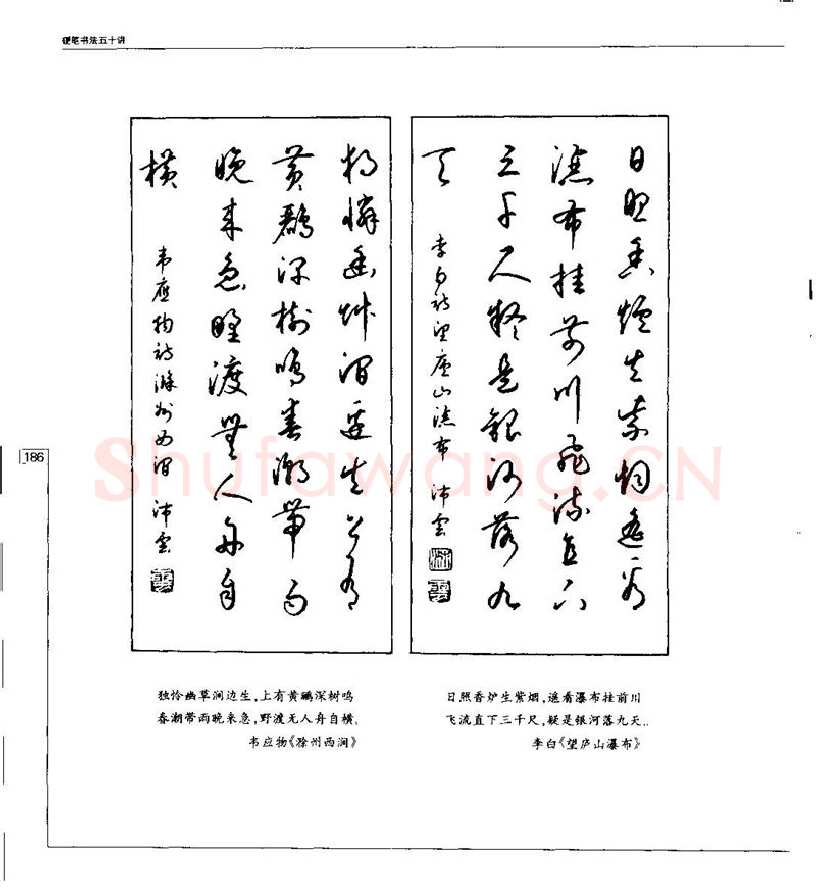 硬笔书法五十讲
日照香炉生紫烟遥看
瀑布挂前川飞流直下
三千尺疑是银河落九
天
李白诗望庐山瀑布 沛云
独怜幽草涧边生上有
黄鹂深树鸣春潮带雨
晚来急野渡无人舟自
横
韦应物诗滁州西涧 沛云
186
Shufawang.CN
独怜幽草涧边生,上有黄鹂深树鸣
春潮带雨晚来急,野渡无人舟自横.
韦应物《滁州西涧》
日照香炉生紫烟,遥看瀑布挂前川
飞流直下三千尺,疑是银河落九天..
李白《望庐山瀑布》